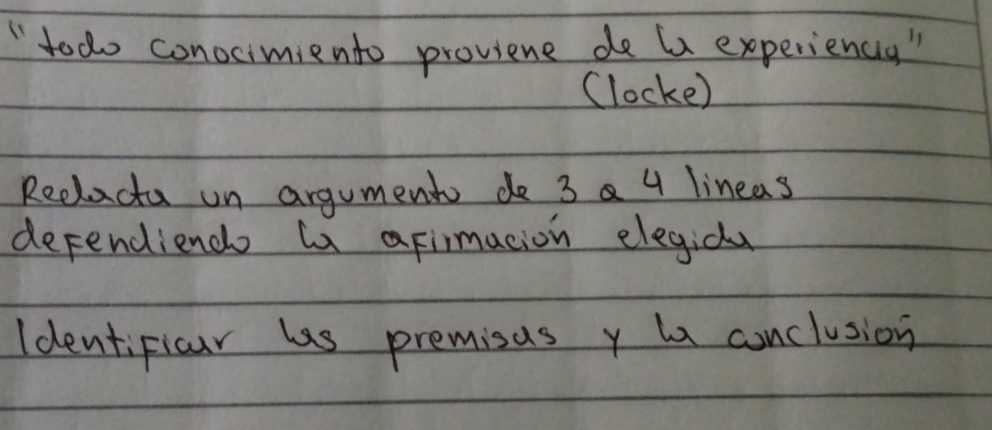 "todo conocimiento proviene de la experiencia"
(locke)
Redacta un argumento de 3 a 4 lineas
defendiendo la afirmación elegida
Identificar las premisas y la conclusión